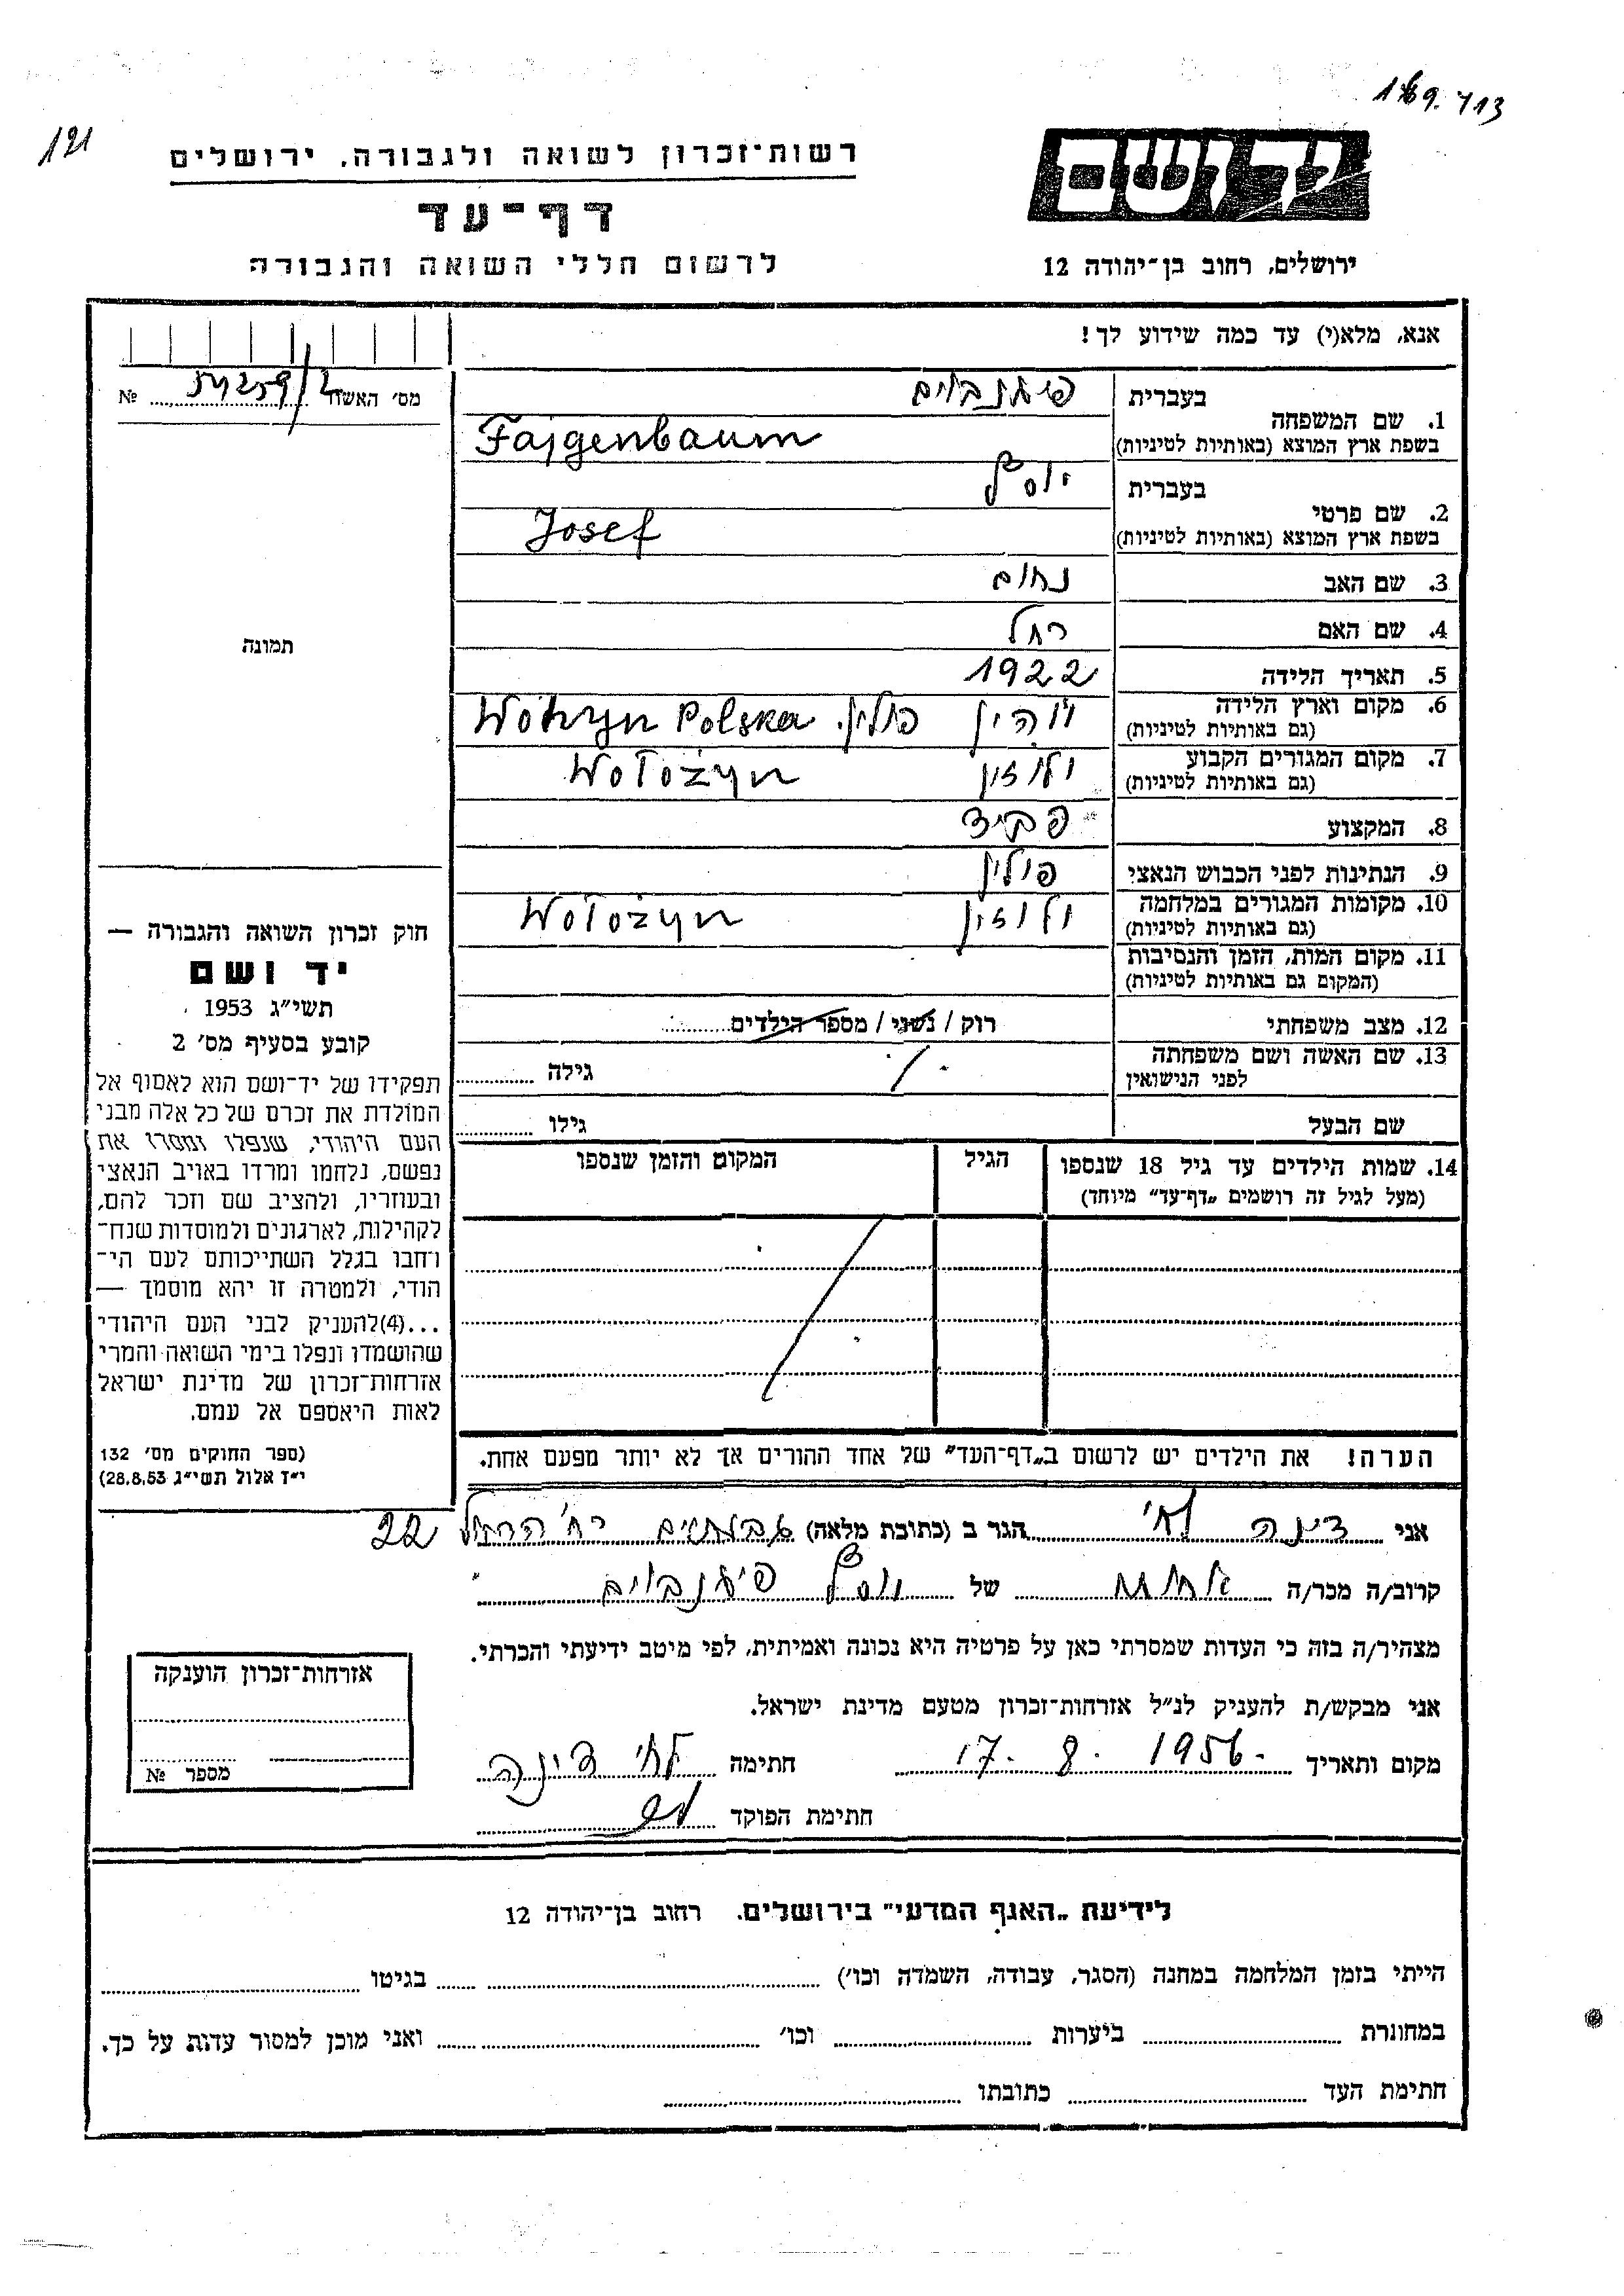 169. 713
121
רשות־זכרון לשואה ולגבורה. ירושלים
יד ושם
דף־עד
לרשום חללי השואה והגבורה
ירושלים, רחוב בן־יהודה 12
אנא, מלא(י) עד כמה שידוע לך!
מס׳ האשה 54259/2 №
1. שם המשפחה
בעברית
בשפת ארץ המוצא (באותיות לטיניות)
Fajgenbaum
2. שם פרטי
בעברית יוסף
בשפת ארץ המוצא (באותיות לטיניות)
Josef
3. שם האב נחום
4. שם האם רחל
5. תאריך הלידה 1922
6. מקום וארץ הלידה
(גם באותיות לטיניות)
ווהין פולין. Wohyn Polska
7. מקום המגורים הקבוע
(גם באותיות לטיניות)
ולוזין Wołożyn
8. המקצוע פקיד
9. הנתינות לפני הכבוש הנאצי פולין
10. מקומות המגורים במלחמה
(גם באותיות לטיניות)
ולוזין Wołożyn
11. מקום המות, הזמן והנסיבות
(המקום גם באותיות לטיניות)
12. מצב משפחתי רוק / נשוי / מספר הילדים
13. שם האשה ושם משפחתה
לפני הנישואין
גילה
שם הבעל גילו
14. שמות הילדים עד גיל 18 שנספו
(מעל לגיל זה רושמים „דף־עד״ מיוחד)
הגיל
המקום והזמן שנספו
הערה! את הילדים יש לרשום ב„דף־העד״ של אחד ההורים אך לא יותר מפעם אחת.
תמונה
חוק זכרון השואה והגבורה —
יד ושם
תשי״ג 1953
קובע בסעיף מס׳ 2
תפקידו של יד־ושם הוא לאסוף אל
המולדת את זכרם של כל אלה מבני
העם היהודי, שנפלו ומסרו את
נפשם, נלחמו ומרדו באויב הנאצי
ובעוזריו, ולהציב שם וזכר להם,
לקהילות, לארגונים ולמוסדות שנח־
רחבו בגלל השתייכותם לעם הי־
הודי, ולמטרה זו יהא מוסמך —
...(4)להעניק לבני העם היהודי
שהושמדו ונפלו בימי השואה והמרי
אזרחות־זכרון של מדינת ישראל
לאות היאספם אל עמם.
(ספר החוקים מס׳ 132
י״ז אלול תשי״ג 28.8.53)
אני דינה לחי הגר ב (כתובת מלאה) רח׳ 22
קרוב/ה מכר/ה של יוסף
מצהיר/ה בזה כי העדות שמסרתי כאן על פרטיה היא נכונה ואמיתית, לפי מיטב ידיעתי והכרתי.
אני מבקש/ת להעניק לנ״ל אזרחות־זכרון מטעם מדינת ישראל.
מקום ותאריך 17. 8. 1956. חתימה לחי דינה
חתימת הפוקד
אזרחות־זכרון הוענקה
מספר №
לידיעת „האגף המדעי״ בירושלים. רחוב בן־יהודה 12
הייתי בזמן המלחמה במחנה (הסגר, עבודה, השמדה וכו׳) בגיטו
במחתרת ביערות וכו׳ ואני מוכן למסור עדות על כך.
חתימת העד כתובתו